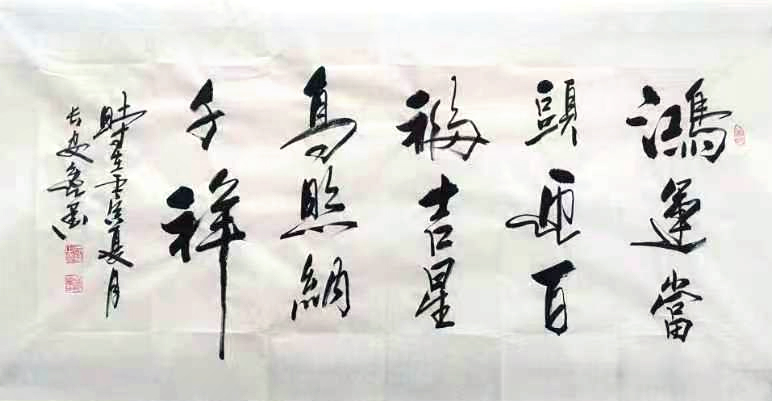 鴻運當
頭迎百
福吉星
高照納
千祥
時在壬寅夏月
長安